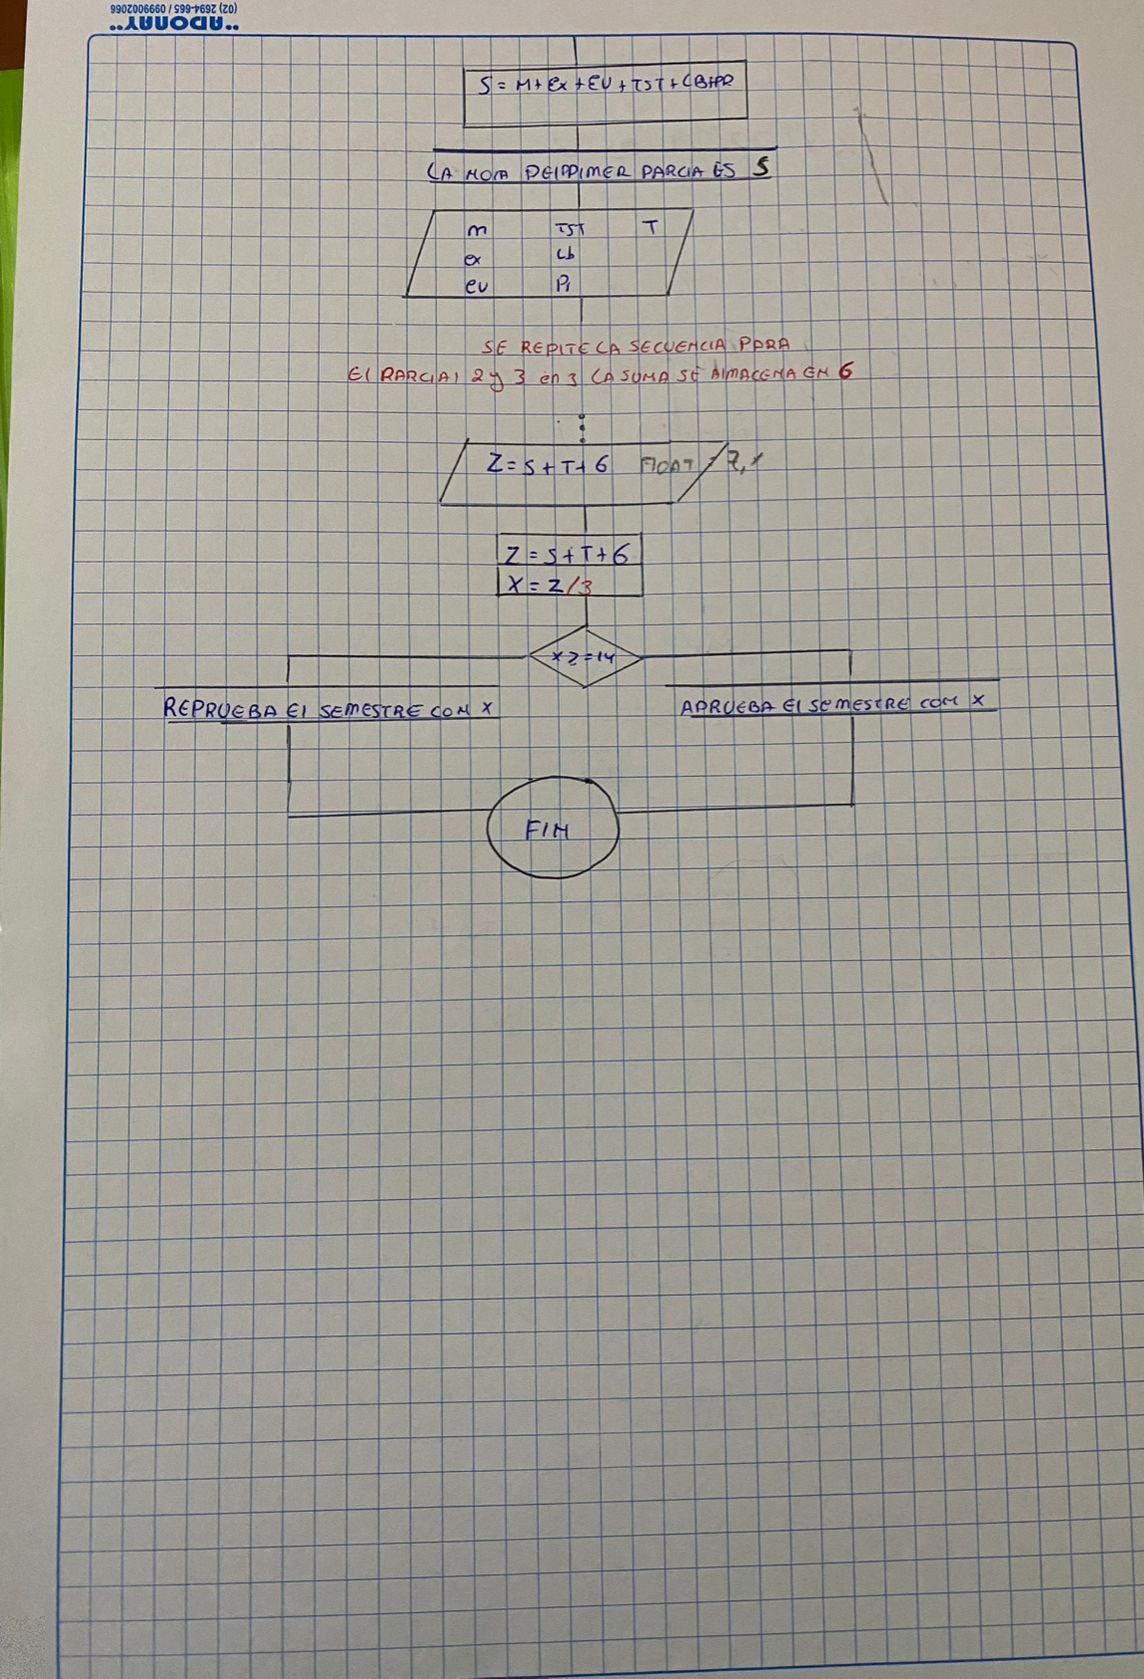 (02) 2694-665 / 0999002066
"ADONAY"
S = M + ex + EV + TST + CB + PR
LA NOTA DEL PRIMER PARCIAL ES S
m TST T
ex Cb
ev Pr
SE REPITE LA SECUENCIA PARA
El PARCIAl 2 y 3 en 3 LA SUMA SE AlMACENA EN 6
Z = S + T + 6 FlOAT Z, x
Z = S + T + 6
X = Z/3
REPRUEBA El SEMESTRE CON X
APRUEBA El SEMESTRE CON X
FIN